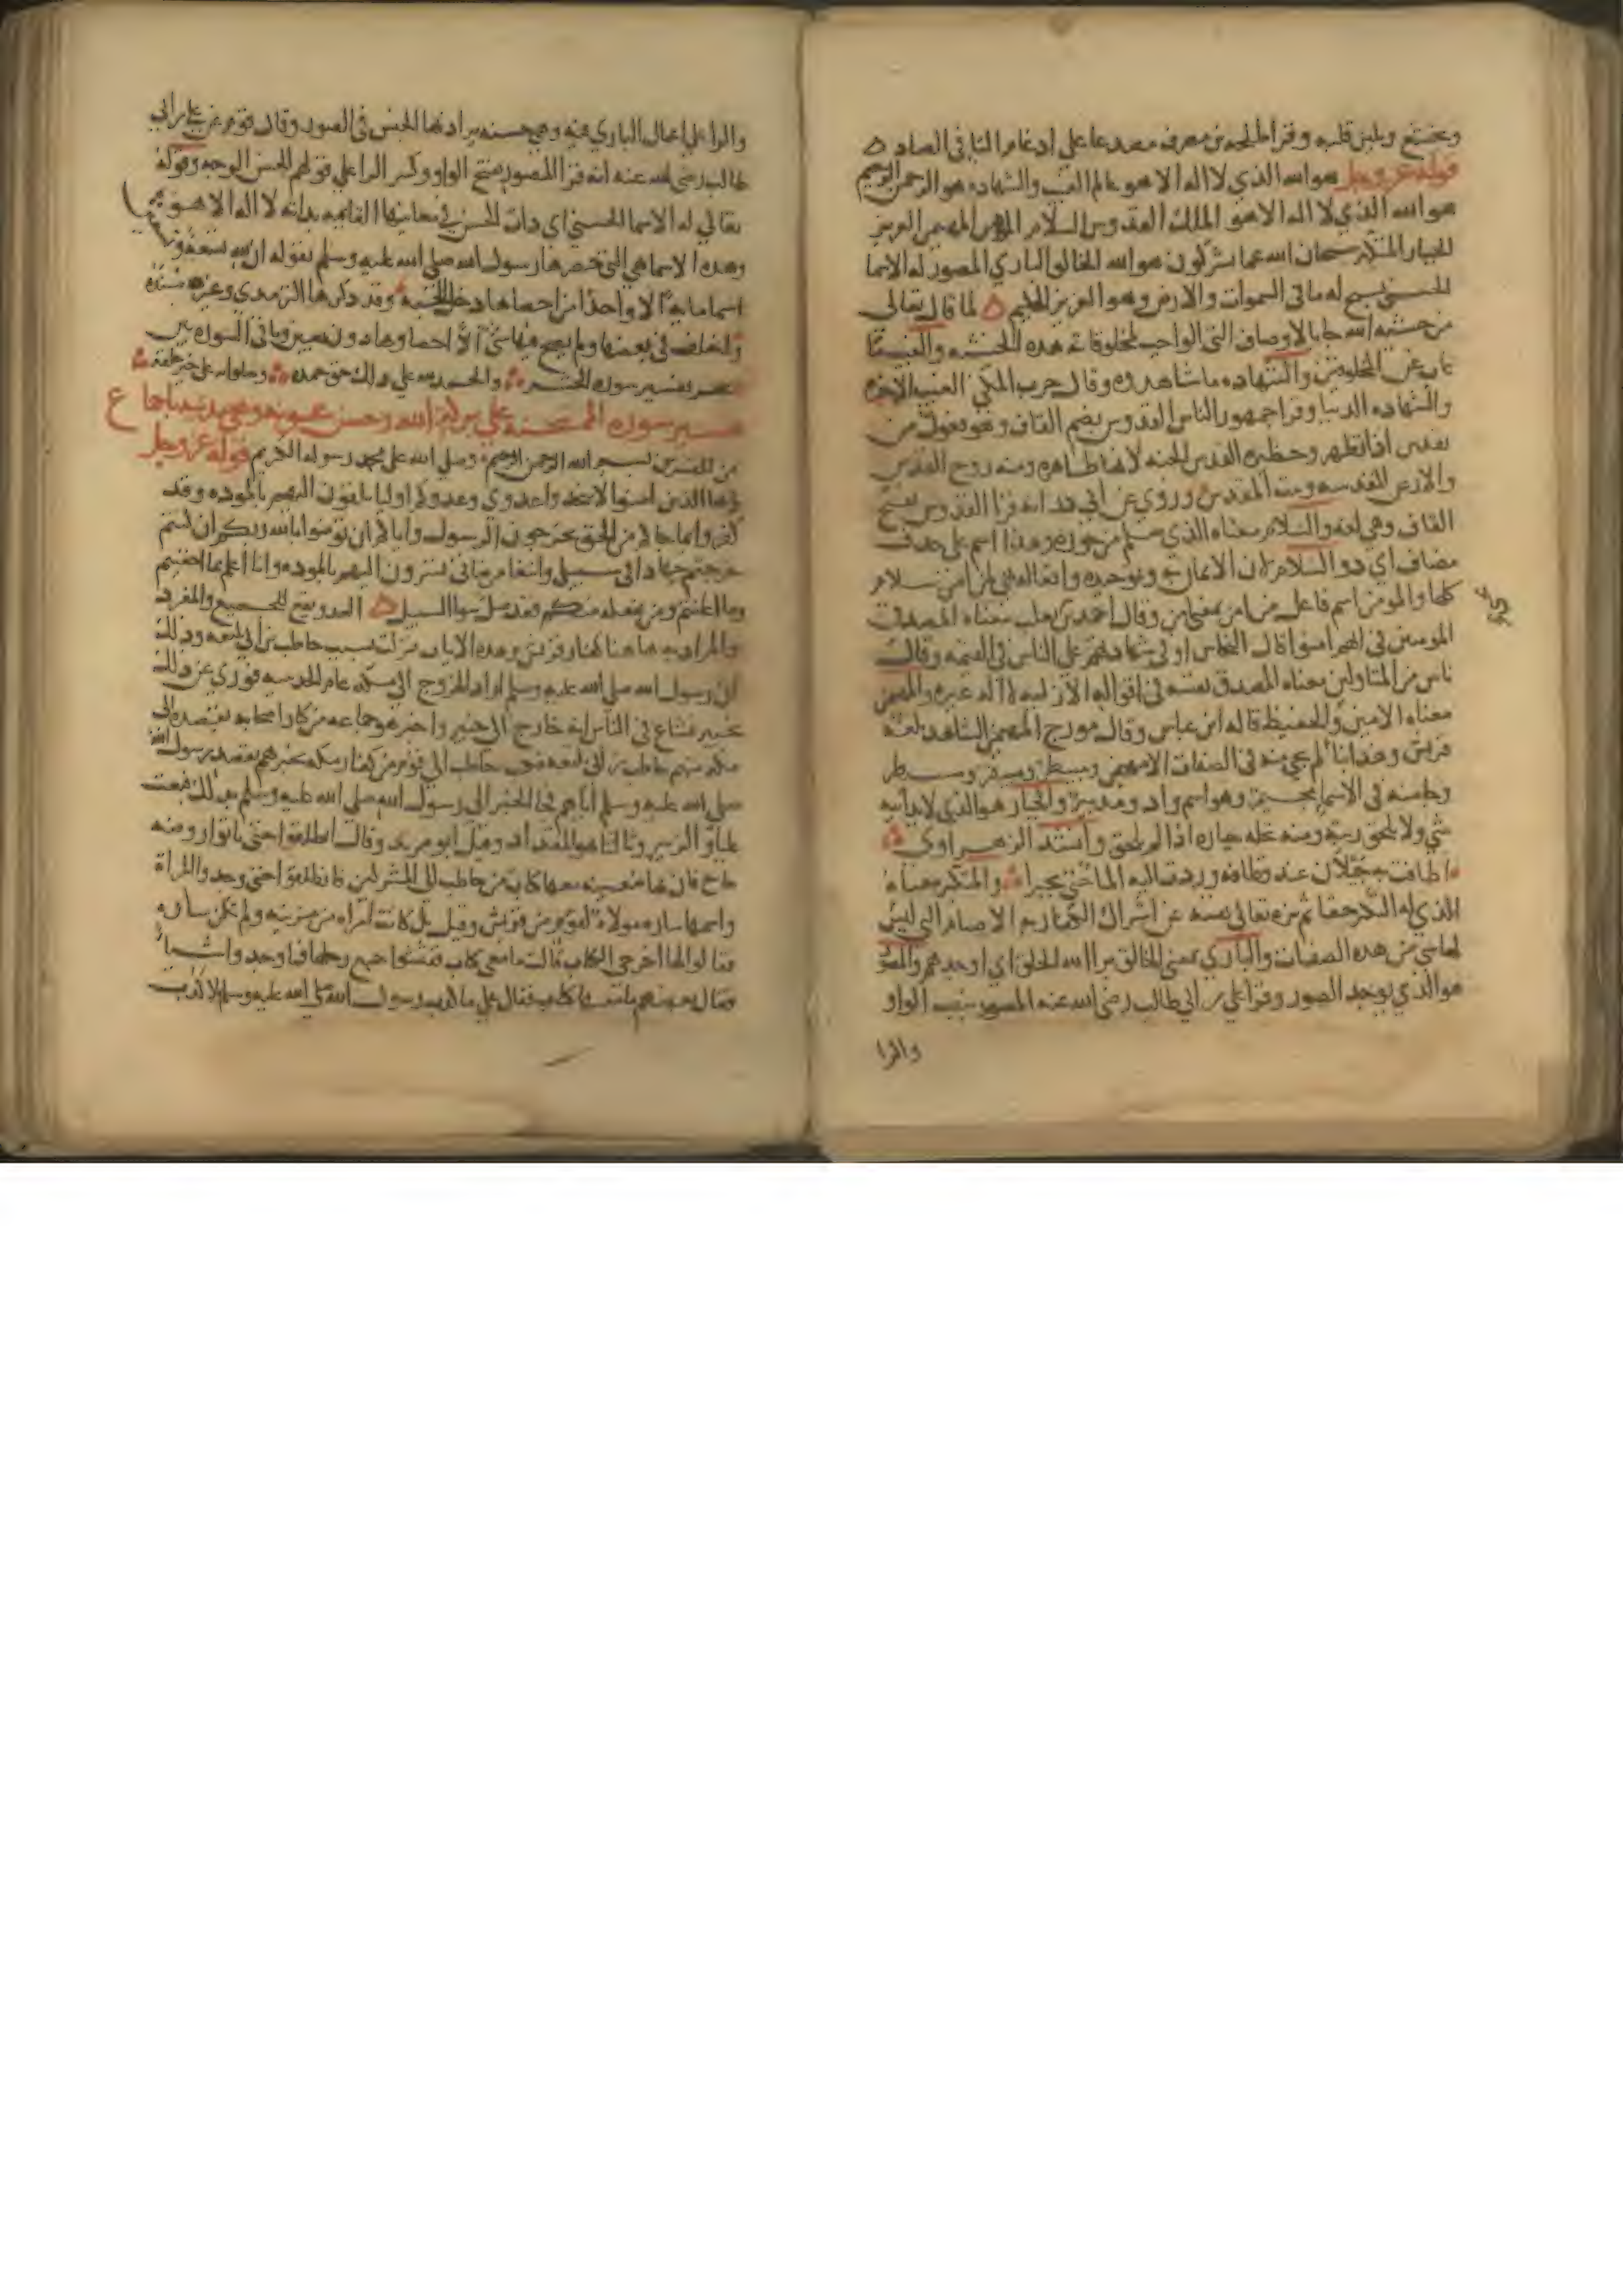 ويخشع ويلين قلبه وقرا طلحه بن مصرف مصدعا على ادغام التا في الصاد
قوله عز وجل هو الله الذي لا اله الا هو عالم الغيب والشهاده هو الرحمن الرحيم
هو الله الذي لا اله الا هو الملك القدوس السلام المومن المهيمن العزيز
الجبار المتكبر سبحان الله عما يشركون هو الله الخالق الباري المصور له الاسما
الحسنى يسبح له ما في السموات والارض وهو العزيز الحكيم لما قال تعالى
من خشيه الله جا بالاوصاف التي الواجب لمخلوقاته هذه الخشيه والغيب ما
غاب عن المخلوقين والشهاده ما شاهدوه وقال حرب المكي الغيب الاخره
والشهاده الدنيا وقرا جمهور الناس القدوس بضم القاف وهو فعول من
تقدس اذا تطهر وحظيره القدس الجنه لانها طاهره ومنه روح القدس
والارض المقدسه وبيت المقدس وروي عن ابي ذر انه قرا القدوس بفتح
القاف وهي لغه والسلام معناه الذي سلم من جوره وهذا اسم على حذف
مضاف اي ذو السلام لان الايمان به وتوحيده وافعاله هي لمن امن سلام
كلها والمومن اسم فاعل من امن بمعنى امن وقال احمد بن يحيى معناه المصدق
المومنين في انهم امنوا قال النحاس او في شهادتهم على الناس في القيمه وقال
ناس من المتاولين معناه المصدق نفسه في اقواله الازليه لا اله غيره والمهيمن
معناه الامين والحفيظ قاله ابن عباس وقال مورج المهيمن الشاهد بلغه
قريش وهذا بنا لم يجي منه في الصفات الا مهيمن ومسيطر ومبيقر ومبيطر
وجا منه في الاسما مجيمر وهو اسم واد ومديبر والجبار هو الذي لا يدانيه
شي ولا تلحق رتبته ومنه نخله جباره اذا لم تلحق وانشد الزهراوي
اطافت به جيلان عند قطافه وردت اليه الما حتى تجبرا والمتكبر معناه
الذي له التكبر حقا ثم نزه تعالى نفسه عن اشراك الكفار به الاصنام التي ليس
لها شي من هذه الصفات والباري بمعنى الخالق برا الله الخلق اي اوجدهم والمصور
هو الذي يوجد الصور وقرا علي بن ابي طالب رضي الله عنه المصور بنصب الواو
والرا
والرا على اعمال الباري فيه وهي حسنه يراد بها الجنس في الصور وقال قوم عن علي بن ابي
طالب رضي الله عنه انه قرا المصور بفتح الواو وكسر الرا على قولهم الحسن الوجه وقوله
تعالى له الاسما الحسنى اي ذات الحسن في معانيها القايمه بذاته لا اله الا هو
وهذه الاسما هي التي حصرها رسول الله صلى الله عليه وسلم بقوله ان لله تسعه وتسعين
اسما مايه الا واحدا من احصاها دخل الجنه وقد ذكرها الترمذي وغيره مسنده
واختلف في بعضها ولم يصح منها شي الا احصاوها دون تعيين وباقي السوره بين
تفسير سوره الحشر والحمد لله على ذلك حق حمده وصلواته على خير خلقه
تفسير سوره الممتحنه على بركه الله وحسن عونه وهي مدنيه باجماع
من المفسرين بسم الله الرحمن الرحيم وصلى الله على محمد رسوله الكريم قوله عز وجل
يا ايها الذين امنوا لا تتخذوا عدوي وعدوكم اوليا تلقون اليهم بالموده وقد
كفروا بما جاكم من الحق يخرجون الرسول واياكم ان تومنوا بالله ربكم ان كنتم
خرجتم جهادا في سبيلي وابتغا مرضاتي تسرون اليهم بالموده وانا اعلم بما اخفيتم
وما اعلنتم ومن يفعله منكم فقد ضل سوا السبيل العدو يقع للجميع والمفرد
والمراد به هاهنا كفار قريش وهذه الايات نزلت بسبب حاطب بن ابي بلتعه وذلك
ان رسول الله صلى الله عليه وسلم اراد الخروج الى مكه عام الحديبيه فورى عن ذلك
بخيبر فشاع في الناس انه خارج الى خيبر واخبر هو جماعه من كبار اصحابه بقصده الى
مكه منهم حاطب بن ابي بلتعه فكتب حاطب الى قوم من كفار مكه يخبرهم بقصد رسول الله
صلى الله عليه وسلم اياهم فجا الخبر الى رسول الله صلى الله عليه وسلم بذلك فبعث
عليا والزبير وثالثا هو المقداد وقيل ابو مرثد وقال انطلقوا حتى تاتوا روضه
خاخ فان بها ظعينه معها كتاب من حاطب الى المشركين فانطلقوا حتى وجدوا المراه
واسمها ساره مولاه لقوم من قريش وقيل بل كانت امراه من مزينه ولم تكن ساره
فقالوا لها اخرجي الكتاب قالت ما معي كتاب ففتشوا جميع رحلها فما وجدوا شيا
فقال بعضهم ما معها كتاب فقال علي ما كذب رسول الله صلى الله عليه وسلم ولا كذب